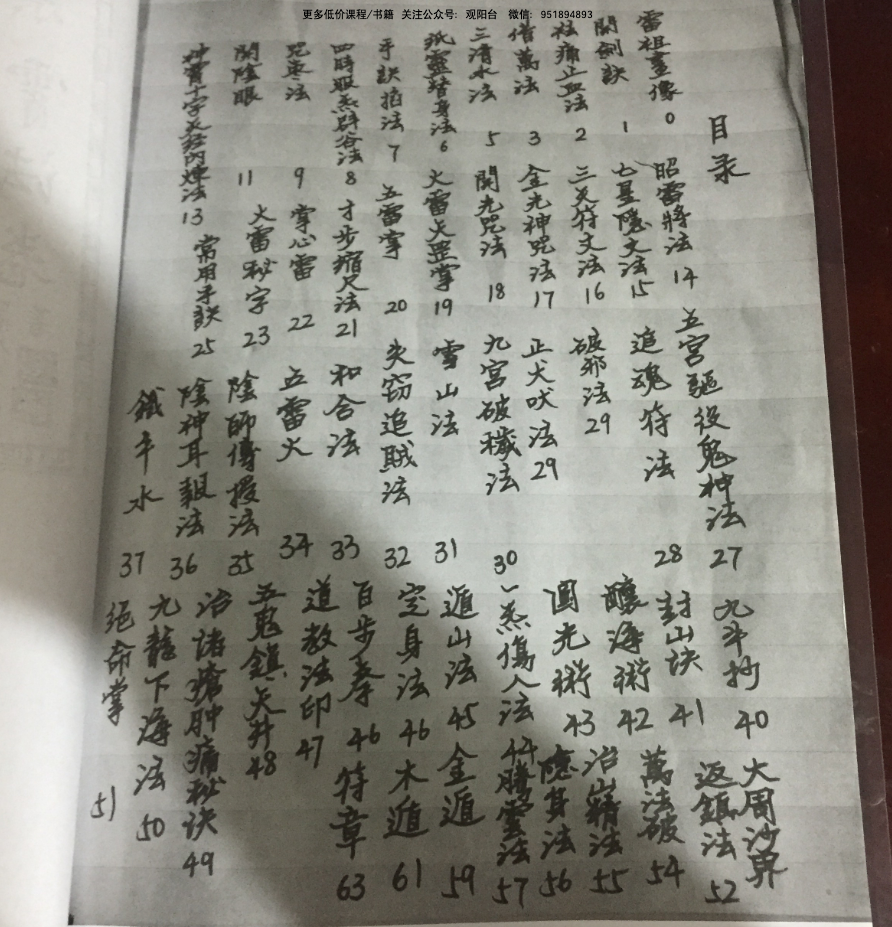 更多低价课程/书籍 关注公众号：观阳台 微信：951894893
目录
雷祖畫像 0
開劍訣 1
祛痛止血法 2
借萬法 3
三清水法 5
紙靈替身法 6
手訣掐法 7
四時服炁辟谷法 8
咒枣法 9
開陰眼 11
神霄十字天经内煉法 13
昭雷將法 14
七星隱文法 15
三天符文法 16
金光神咒法 17
開光咒法 18
火雷天罡掌 19
五雷掌 20
才步縮尺法 21
掌心雷 22
火雷秘字 23
常用手訣 25
五宫驅役鬼神法 27
追魂符法 28
破邪法 29
正犬吠法 29
九宫破穢法 30
雪山法 31
失窃追賊法 32
和合法 33
五雷火 34
陰師傳授法 35
陰神耳報法 36
鐵牛水 37
九斗抄 40
封山诀 41
釀海術 42
圓光術 43
一炁傷人法 44
遁山法 45
定身法 46
百步拳 46
道教法印 47
五鬼鎮天井 48
治諸瘡肿痛秘诀 49
九龍下海法 50
绝命掌 51
大周沙界
返鎮法 52
萬法破 54
治山精法 55
隱身法 56
騰雲法 57
金遁 59
木遁 61
符章 63